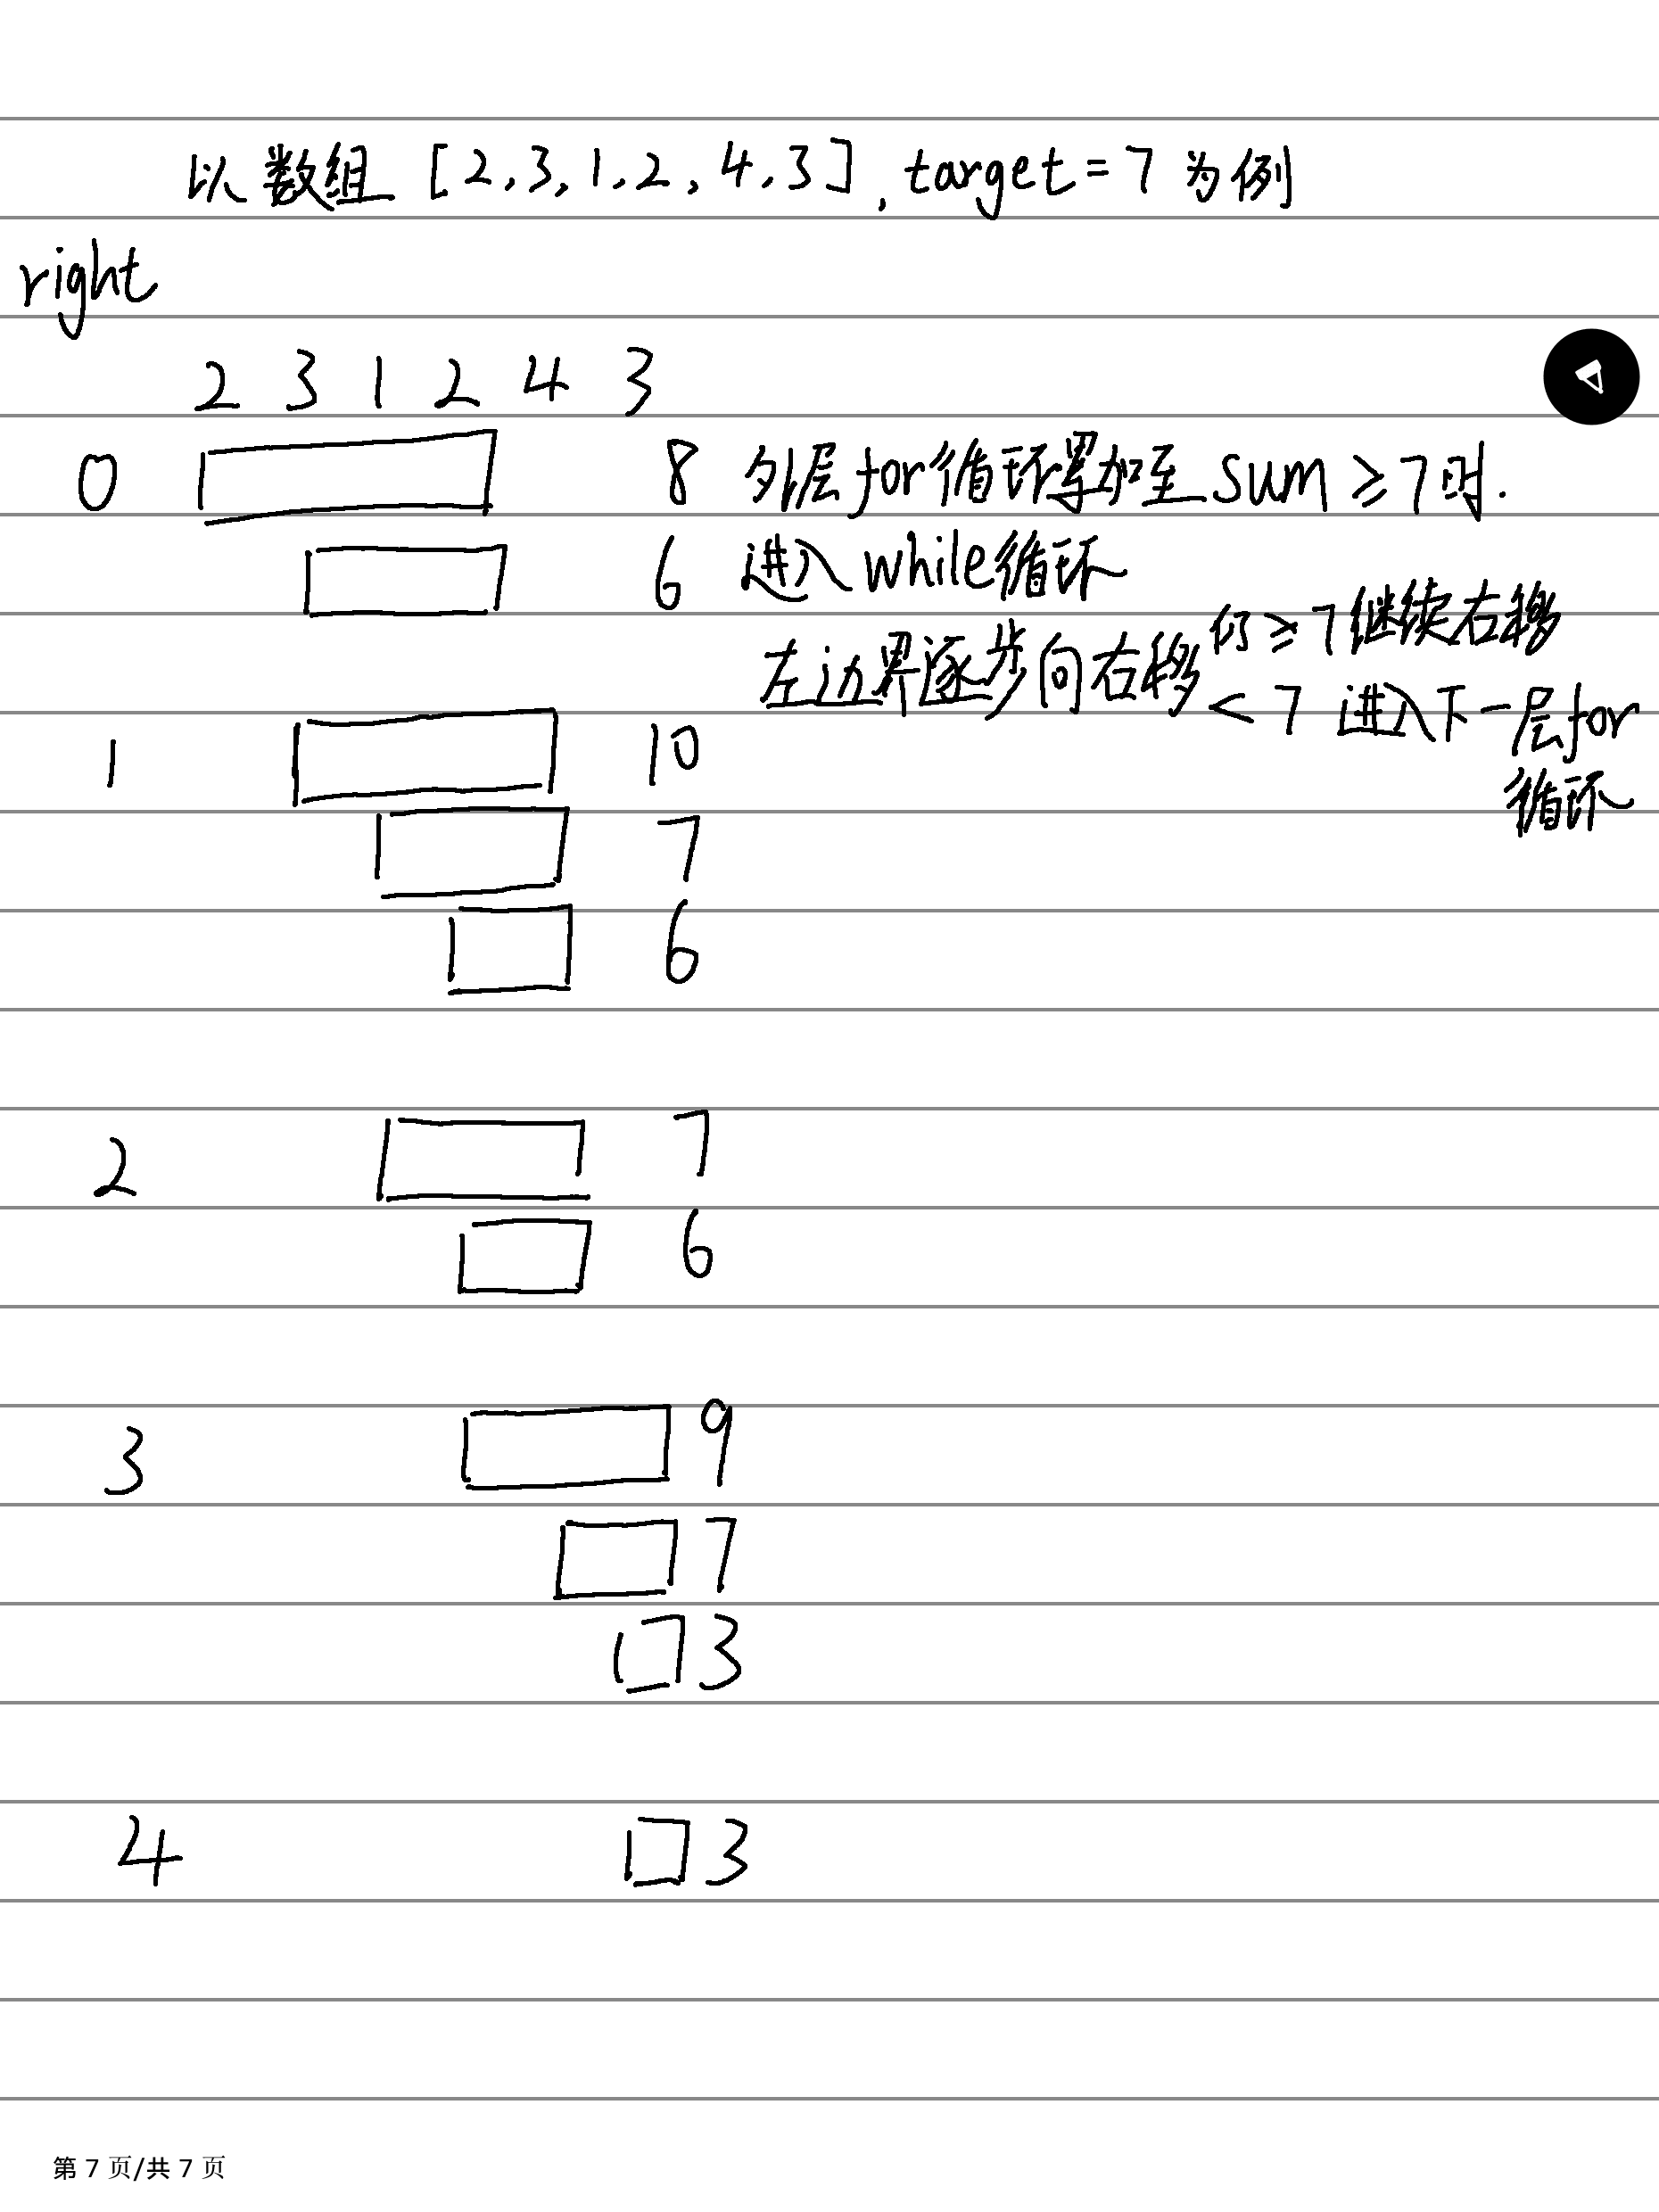 以数组 [2,3,1,2,4,3], target=7 为例
right
2 3 1 2 4 3
0 8 外层for循环累加至 sum ≥7时.
6 进入while循环
左边界逐步向右移 仍≥7继续右移
<7 进入下一层for
循环
1 10
7
6
2 7
6
3 9
7
3
4 3
第 7 页/共 7 页